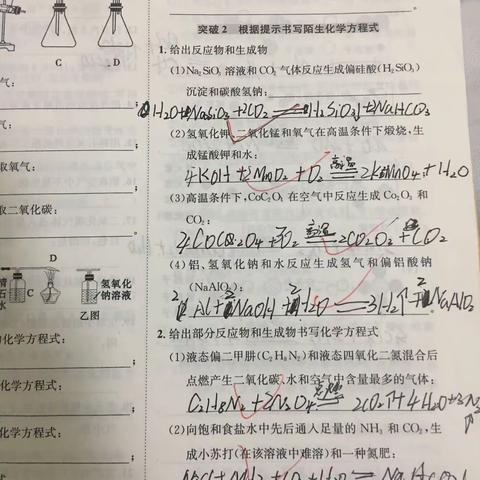 C
D
突破2 根据提示书写陌生化学方程式
1. 给出反应物和生成物
(1)Na₂SiO₃ 溶液和CO₂ 气体反应生成偏硅酸(H₂SiO₃)
气:
沉淀和碳酸氢钠:
(2)氢氧化钾、二氧化锰和氧气在高温条件下煅烧,生
气:
成锰酸钾和水:
取氧气:
4KOH+2MnO₂+O₂ 高温 2K₂MnO₄+H₂O
(3)高温条件下,CoC₂O₄ 在空气中反应生成Co₂O₃ 和
CO₂:
取二氧化碳:
高温
(4)铝、氢氧化钠和水反应生成氢气和偏铝酸钠
D
(NaAlO₂):
石
水
C
氢氧化
钠溶液
乙图
Al+NaOH+H₂O=3H₂↑+NaAlO₂
2. 给出部分反应物和生成物书写化学方程式
化学方程式:
(1)液态偏二甲肼(C₂H₈N₂)和液态四氧化二氮混合后
点燃产生二氧化碳、水和空气中含量最多的气体:
化学方程式:
C₂H₈N₂+2N₂O₄ 点燃 2CO₂↑+4H₂O+3N₂↑
(2)向饱和食盐水中先后通入足量的 NH₃ 和 CO₂,生
化学方程式:
成小苏打(在该溶液中难溶)和一种氮肥: